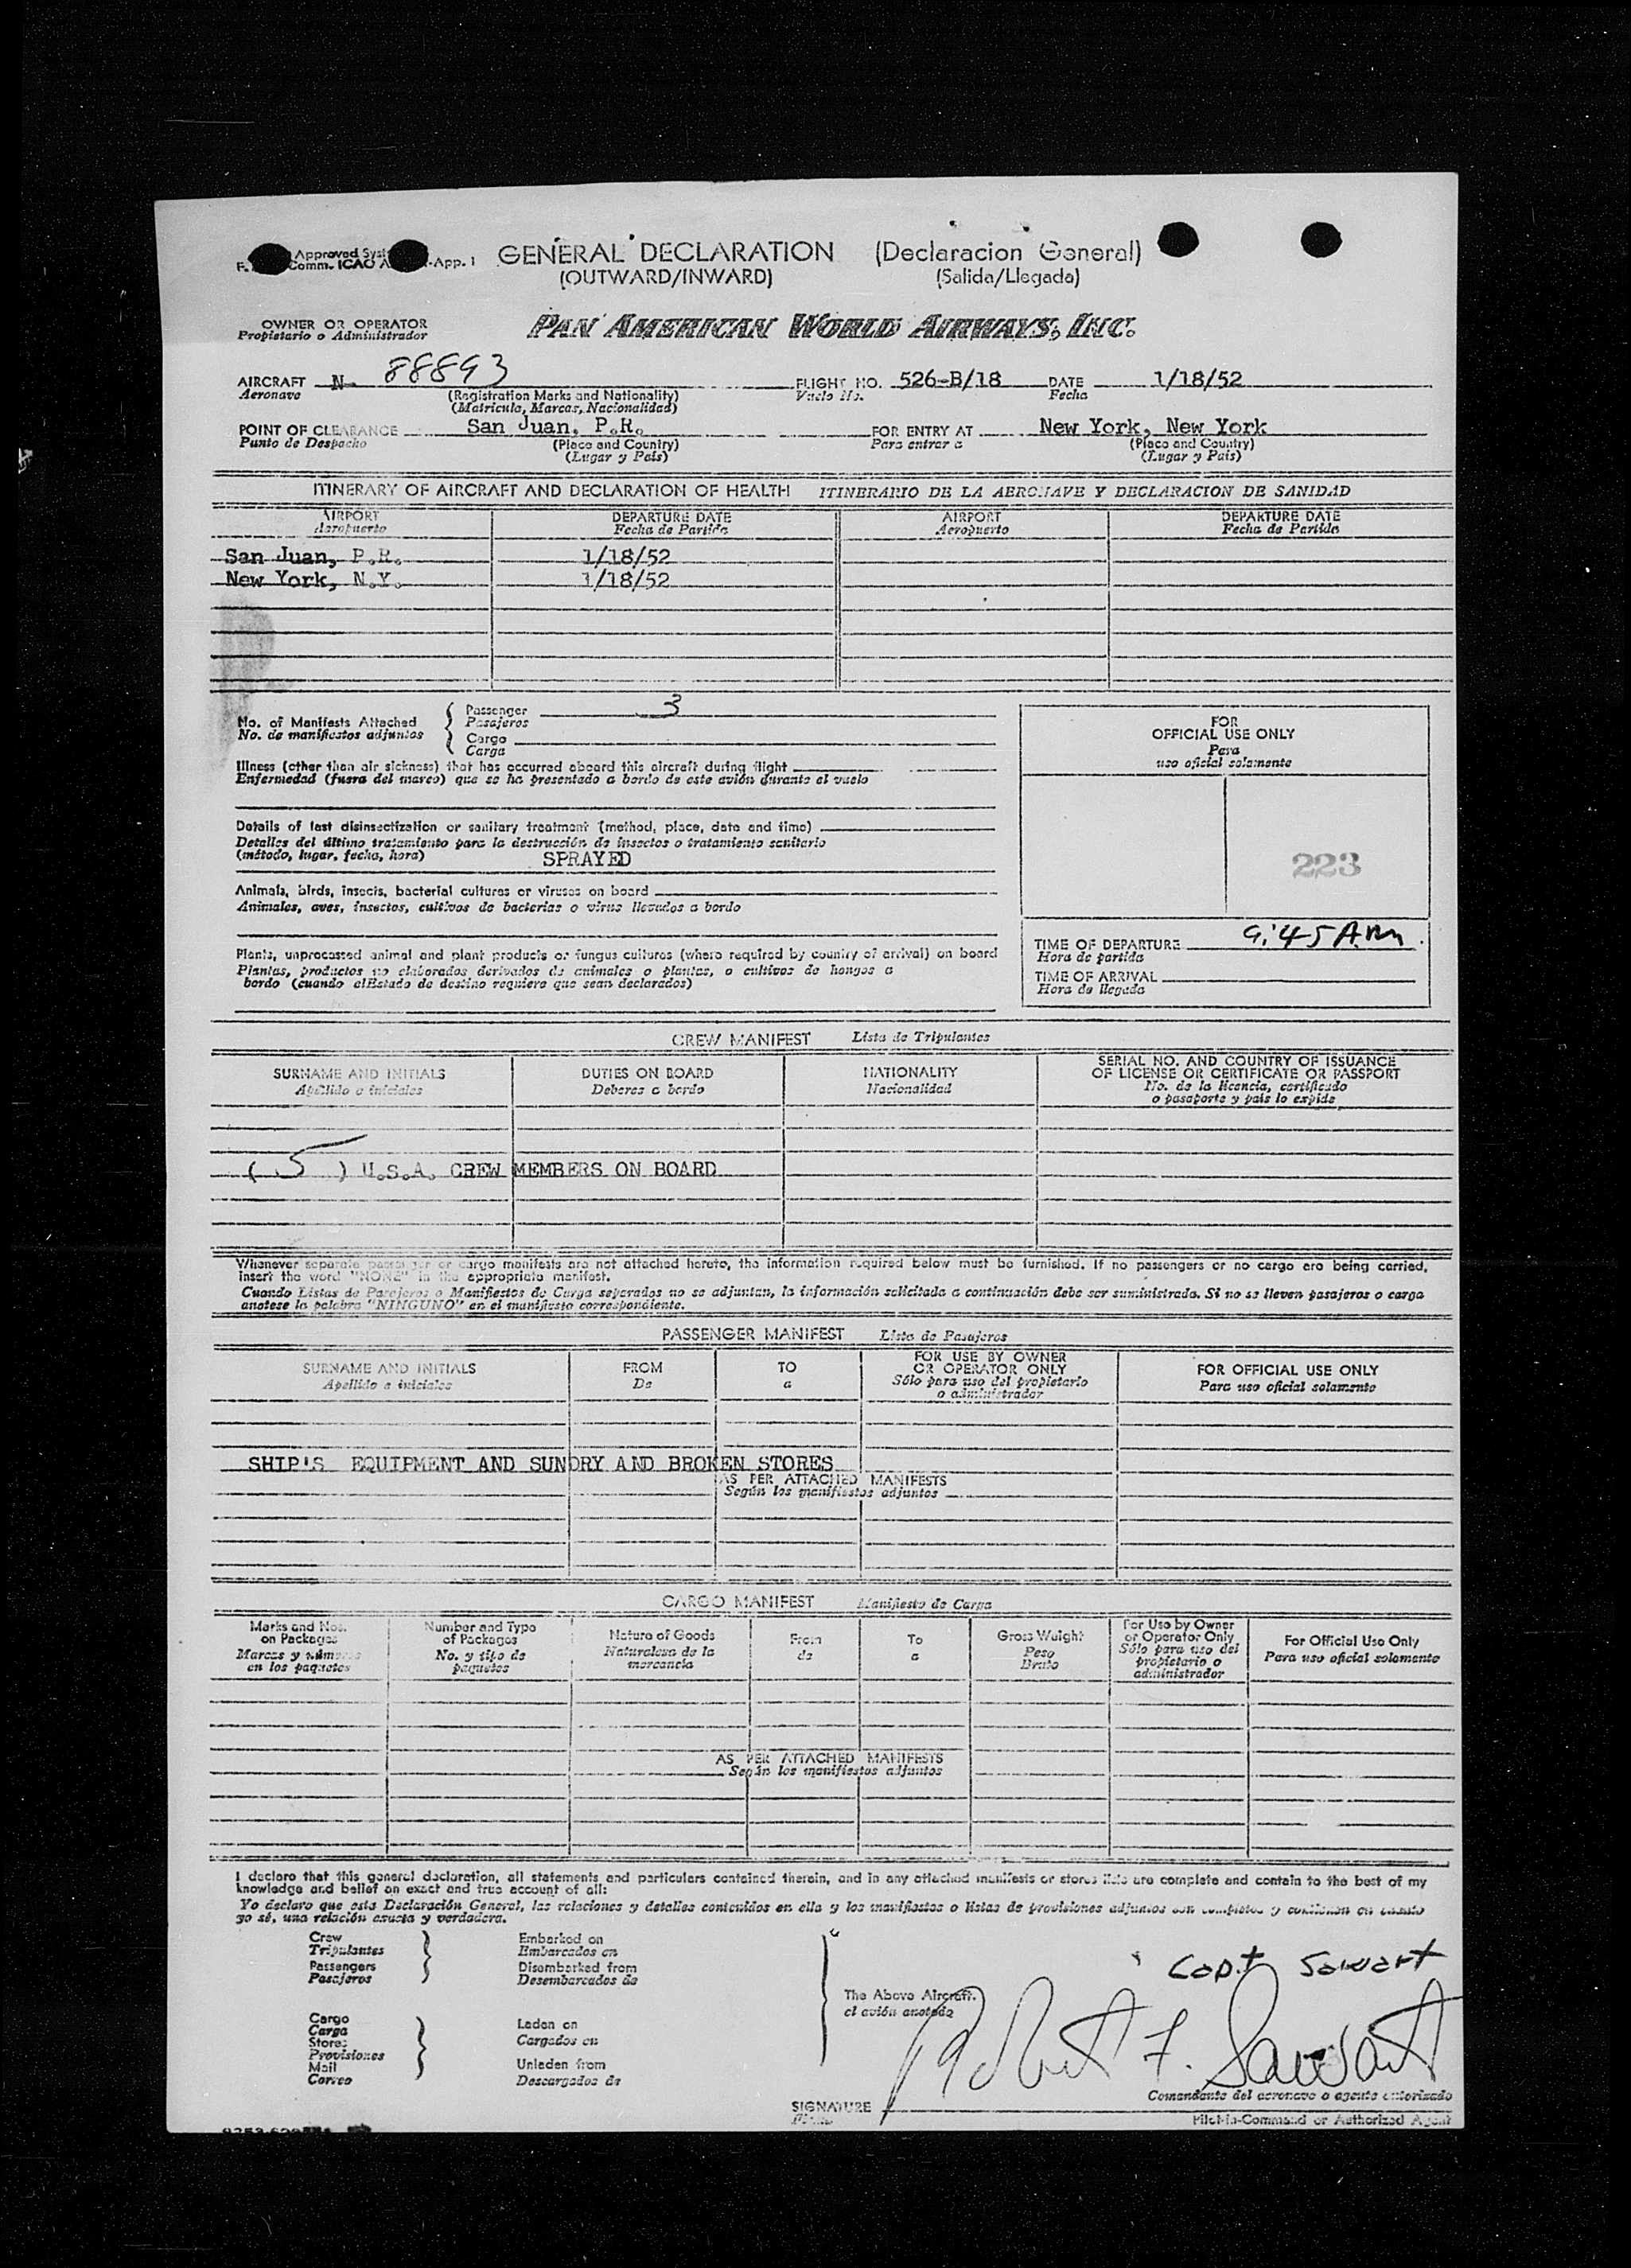 Approved Syst
F. Comm. ICAO A -App. 1
GENERAL DECLARATION (Declaracion General)
(OUTWARD/INWARD) (Salida/Llegada)
OWNER OR OPERATOR
Propietario o Administrador
PAN AMERICAN WORLD AIRWAYS, INC.
AIRCRAFT N- 88893 FLIGHT NO. 526-B/18 DATE 1/18/52
Aeronave (Registration Marks and Nationality) Vuelo No. Fecha
(Matricula, Marcas, Nacionalidad)
POINT OF CLEARANCE San Juan, P.R. FOR ENTRY AT New York, New York
Punto de Despacho (Place and Country) Para entrar a (Place and Country)
(Lugar y País) (Lugar y País)
ITINERARY OF AIRCRAFT AND DECLARATION OF HEALTH ITINERARIO DE LA AERONAVE Y DECLARACION DE SANIDAD
AIRPORT DEPARTURE DATE AIRPORT DEPARTURE DATE
Aeropuerto Fecha de Partida Aeropuerto Fecha de Partida
San Juan, P.R. 1/18/52
New York, N.Y. 1/18/52
No. of Manifests Attached
No. de manifiestos adjuntos
Passenger 3
Pasajeros
Cargo
Carga
Illness (other than air sickness) that has occurred aboard this aircraft during flight
Enfermedad (fuera del mareo) que se ha presentado a bordo de este avión durante el vuelo
Details of last disinsectization or sanitary treatment (method, place, date and time)
Detalles del último tratamiento para la destrucción de insectos o tratamiento sanitario
(método, lugar, fecha, hora) SPRAYED
Animals, birds, insects, bacterial cultures or viruses on board
Animales, aves, insectos, cultivos de bacterias o virus llevados a bordo
Plants, unprocessed animal and plant products or fungus cultures (where required by country of arrival) on board
Plantas, productos no elaborados derivados de animales o plantas, o cultivos de hongos a
bordo (cuando el Estado de destino requiere que sean declarados)
FOR
OFFICIAL USE ONLY
Para
uso oficial solamente
223
TIME OF DEPARTURE 9:45 AM.
Hora de partida
TIME OF ARRIVAL
Hora de llegada
CREW MANIFEST Lista de Tripulantes
SURNAME AND INITIALS DUTIES ON BOARD NATIONALITY SERIAL NO. AND COUNTRY OF ISSUANCE
OF LICENSE OR CERTIFICATE OR PASSPORT
Apellido o iniciales Deberes a bordo Nacionalidad No. de la licencia, certificado
o pasaporte y país lo expide
( 5 ) U.S.A. CREW MEMBERS ON BOARD
Whenever separate passenger or cargo manifests are not attached hereto, the information required below must be furnished. If no passengers or no cargo are being carried,
insert the word "NONE" in the appropriate manifest.
Cuando Listas de Pasajeros o Manifiestos de Carga separados no se adjuntan, la información solicitada a continuación debe ser suministrada. Si no se lleven pasajeros o carga
anotese la palabra "NINGUNO" en el manifiesto correspondiente.
PASSENGER MANIFEST Lista de Pasajeros
SURNAME AND INITIALS FROM TO FOR USE BY OWNER
OR OPERATOR ONLY FOR OFFICIAL USE ONLY
Apellido e iniciales De a Sólo para uso del propietario
o administrador Para uso oficial solamente
SHIP'S EQUIPMENT AND SUNDRY AND BROKEN STORES
AS PER ATTACHED MANIFESTS
Según los manifiestos adjuntos
CARGO MANIFEST Manifiesto de Carga
Marks and Nos.
on Packages
Marcas y números
en los paquetes
Number and Type
of Packages
No. y tipo de
paquetes
Nature of Goods
Naturaleza de la
mercancía
From
de
To
a
Gross Weight
Peso
Bruto
For Use by Owner
or Operator Only
Sólo para uso del
propietario o
administrador
For Official Use Only
Para uso oficial solamente
AS PER ATTACHED MANIFESTS
Según los manifiestos adjuntos
I declare that this general declaration, all statements and particulars contained therein, and in any attached manifests or stores lists are complete and contain to the best of my
knowledge and belief an exact and true account of all:
Yo declaro que esta Declaración General, las relaciones y detalles contenidos en ella y los manifiestos o listas de provisiones adjuntos son completos y contienen en cuanto
yo sé, una relación exacta y verdadera.
Crew
Tripulantes
Passengers
Pasajeros
Embarked on
Embarcados en
Disembarked from
Desembarcados de
Cargo
Carga
Stores
Provisiones
Mail
Correo
Laden on
Cargados en
Unladen from
Descargados de
The Above Aircraft.
el avión anotado
Capt Sawart
Robert F. Sawart
Comandante del aeronave o agente autorizado
SIGNATURE
Firma
Pilot-in-Command or Authorized Agent